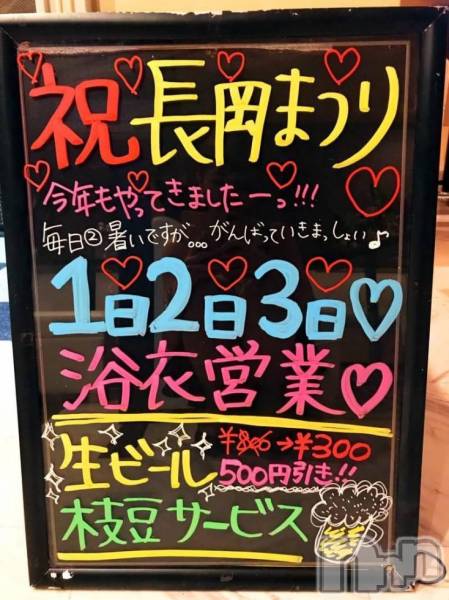 祝長岡まつり
今年もやってきましたーっ!!!
毎日②暑いですが｡｡｡がんばっていきまっしょい♪
1日2日3日♡
浴衣営業♡
生ビール ¥800→¥300
500円引き!!
枝豆サービス